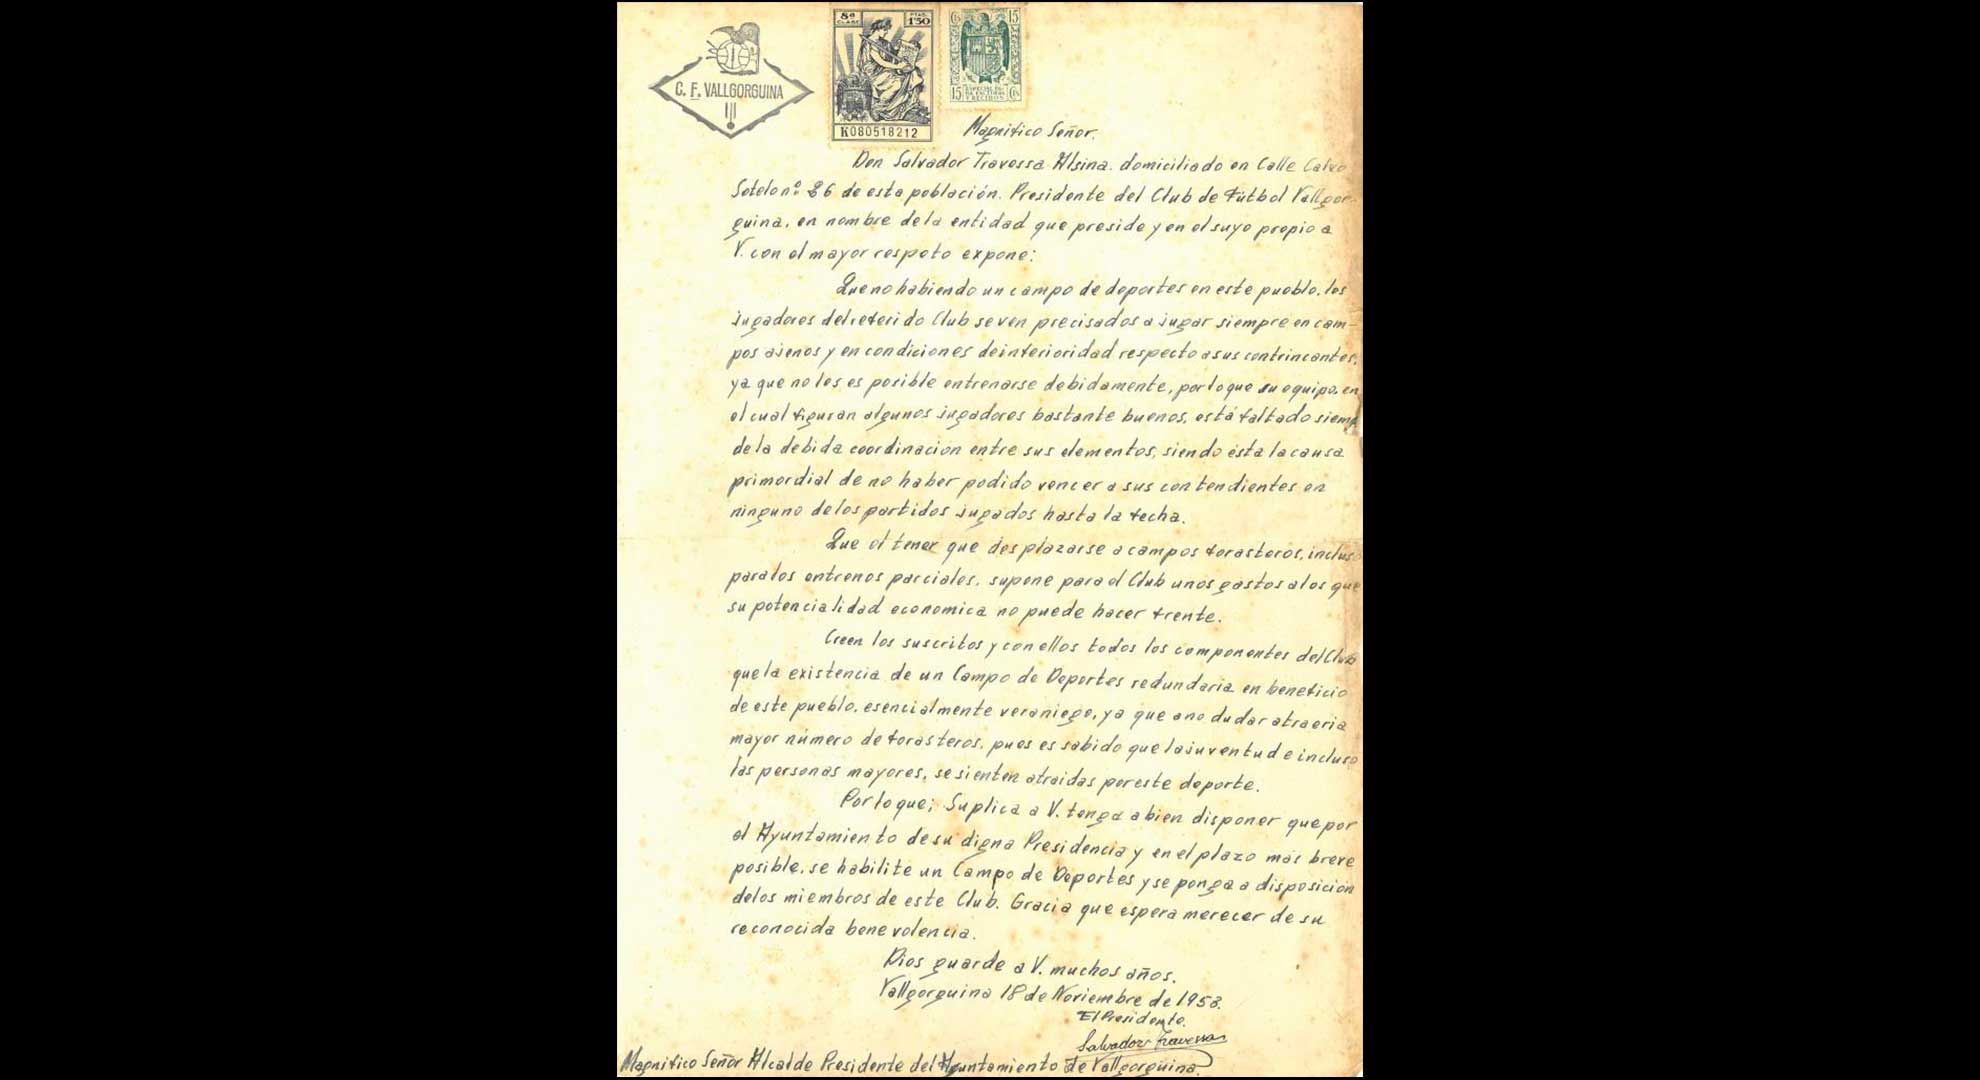 C. F. VALLGORGUINA
8ª CLASE
PTAS. 1'50
K080518212
Cs 15
15 ESPECIAL PARA FACTURAS Y RECIBOS Cs
Magnifico Señor.
Don Salvador Travessa Alsina. domiciliado en Calle Calvo
Sotelo nº 26 de esta población. Presidente del Club de Fútbol Vallgor-
guina, en nombre de la entidad que preside y en el suyo propio a
V. con el mayor respeto expone:
Que no habiendo un campo de deportes en este pueblo, los
jugadores del referido Club se ven precisados a jugar siempre en cam-
pos ajenos y en condiciones de inferioridad respecto a sus contrincantes,
ya que no les es posible entrenarse debidamente, por lo que su equipo, en
el cual figuran algunos jugadores bastante buenos, está faltado siemp
de la debida coordinación entre sus elementos, siendo ésta la causa
primordial de no haber podido vencer a sus contendientes en
ninguno de los partidos jugados hasta la fecha.
Que el tener que desplazarse a campos forasteros, inclus
para los entrenos parciales, supone para el Club unos gastos a los que
su potencialidad economica no puede hacer frente.
Creen los suscritos y con ellos todos los componentes del Club
que la existencia de un Campo de Deportes redundaria en beneficio
de este pueblo, esencialmente veraniego, ya que a no dudar atraeria
mayor número de forasteros, pues es sabido que la juventud e incluso
las personas mayores, se sienten atraidas por este deporte.
Por lo que; Suplica a V. tenga a bien disponer que por
el Ayuntamiento de su digna Presidencia y en el plazo más breve
posible, se habilite un Campo de Deportes y se ponga a disposición
de los miembros de este Club. Gracia que espera merecer de su
reconocida benevolencia.
Dios guarde a V. muchos años.
Vallgorguina 18 de Noviembre de 1953.
El Presidente.
Salvador Travessa
Magnifico Señor Alcalde Presidente del Ayuntamiento de Vallgorguina.